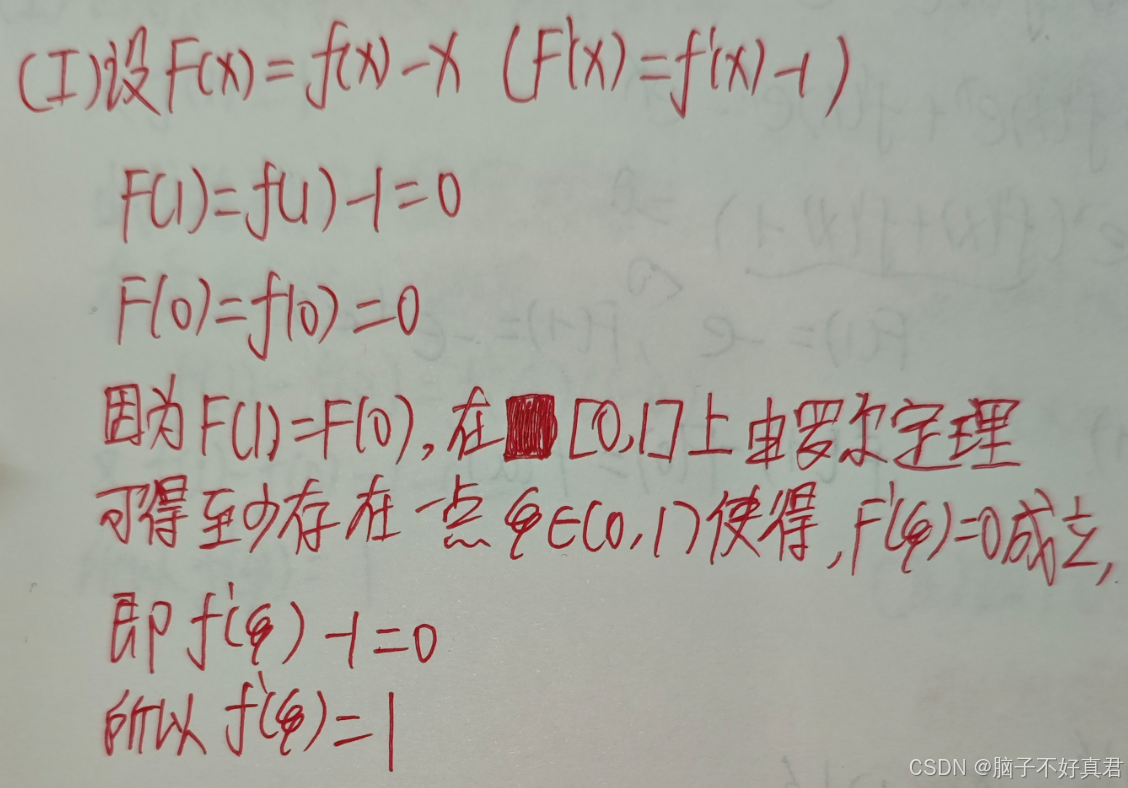 (I)设F(x)=f(x)-x (F'(x)=f'(x)-1)
F(1)=f(1)-1=0
F(0)=f(0)=0
因为F(1)=F(0),在[0,1]上由罗尔定理
可得至少存在一点ξ∈(0,1)使得,F'(ξ)=0成立,
即f'(ξ)-1=0
所以f'(ξ)=1
CSDN @脑子不好真君